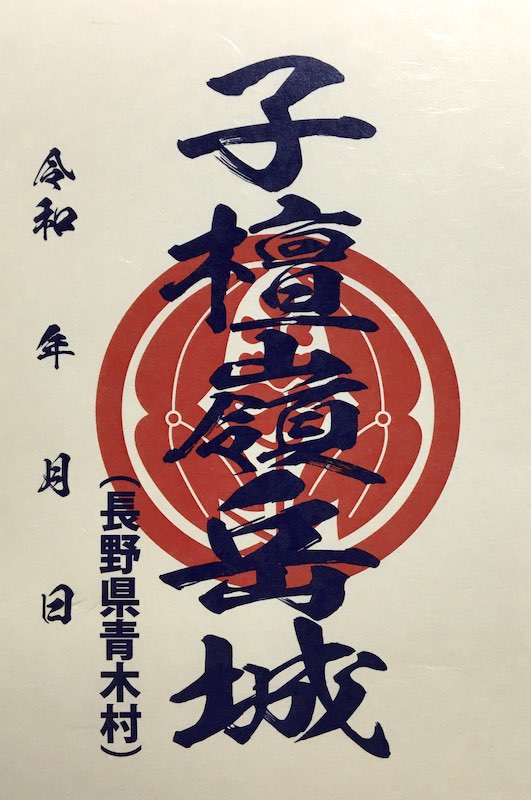 子檀嶺岳城
（長野県青木村）
令和　年　月　日